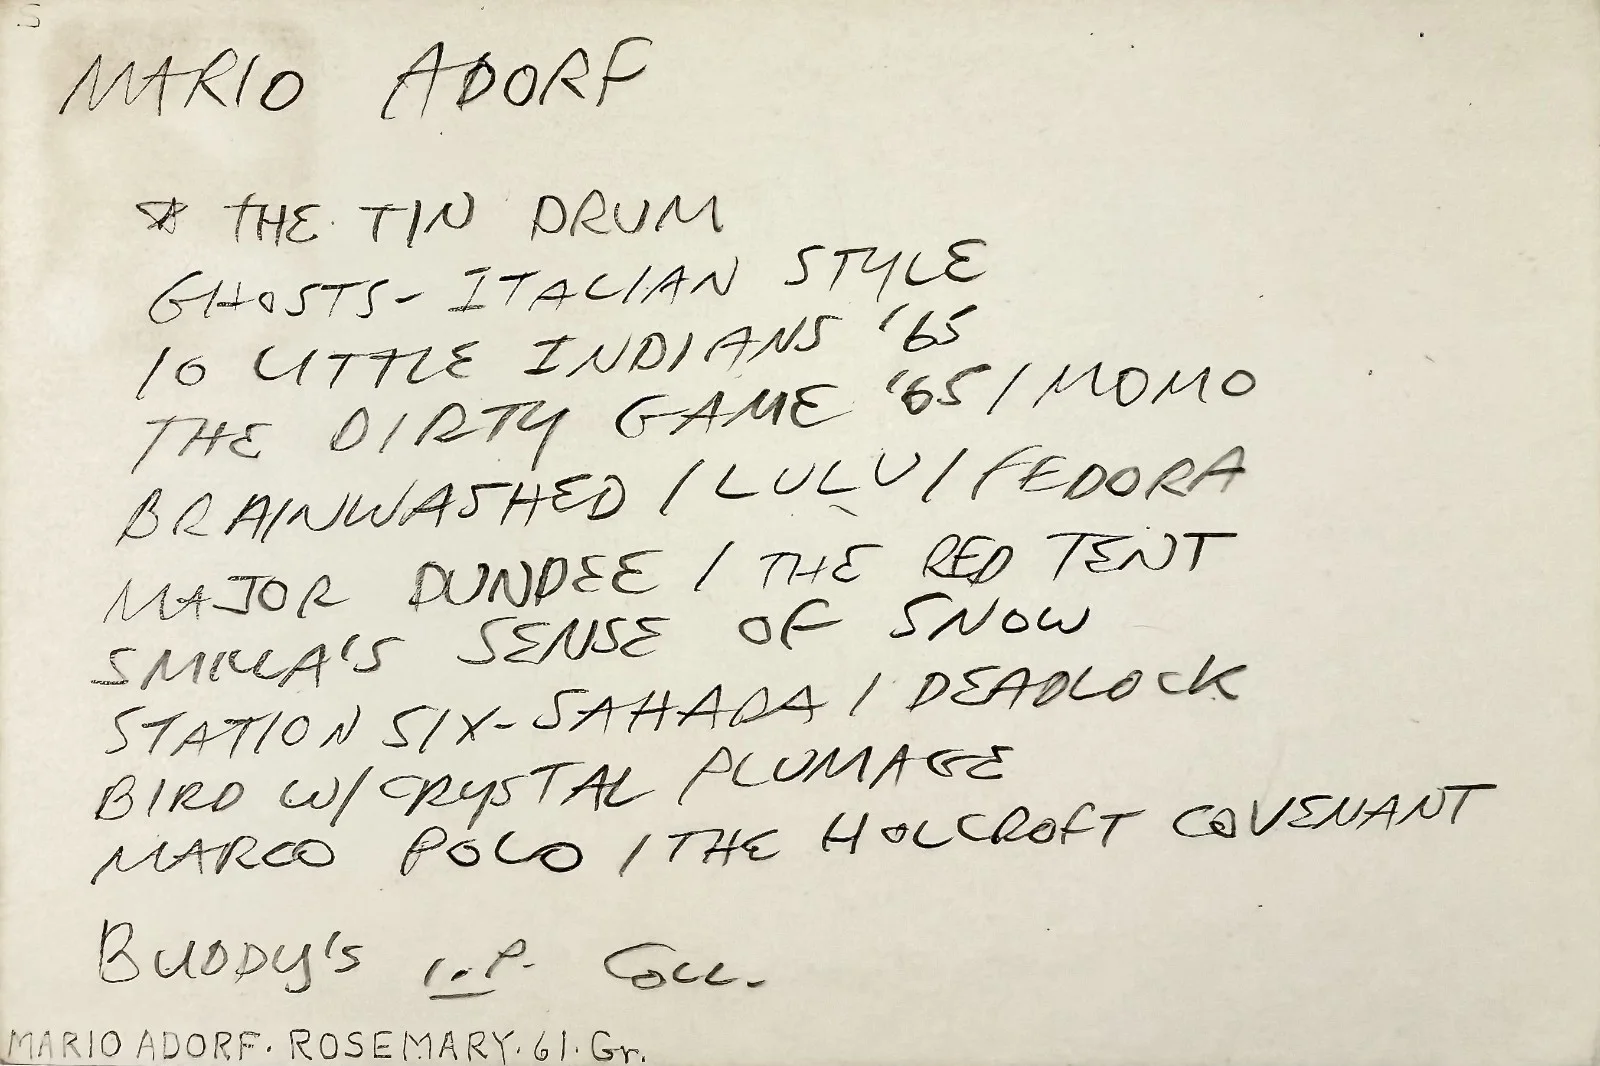 S
MARIO ADORF
☆ THE TIN DRUM
GHOSTS - ITALIAN STYLE
10 LITTLE INDIANS '65
THE DIRTY GAME '65 / MOMO
BRAINWASHED / LULU / FEDORA
MAJOR DUNDEE / THE RED TENT
SMILLA'S SENSE OF SNOW
STATION SIX - SAHARA / DEADLOCK
BIRD W/ CRYSTAL PLUMAGE
MARCO POLO / THE HOLCROFT COVENANT
BUDDY'S I.P. COLL.
MARIO ADORF. ROSEMARY. 61. Gr.